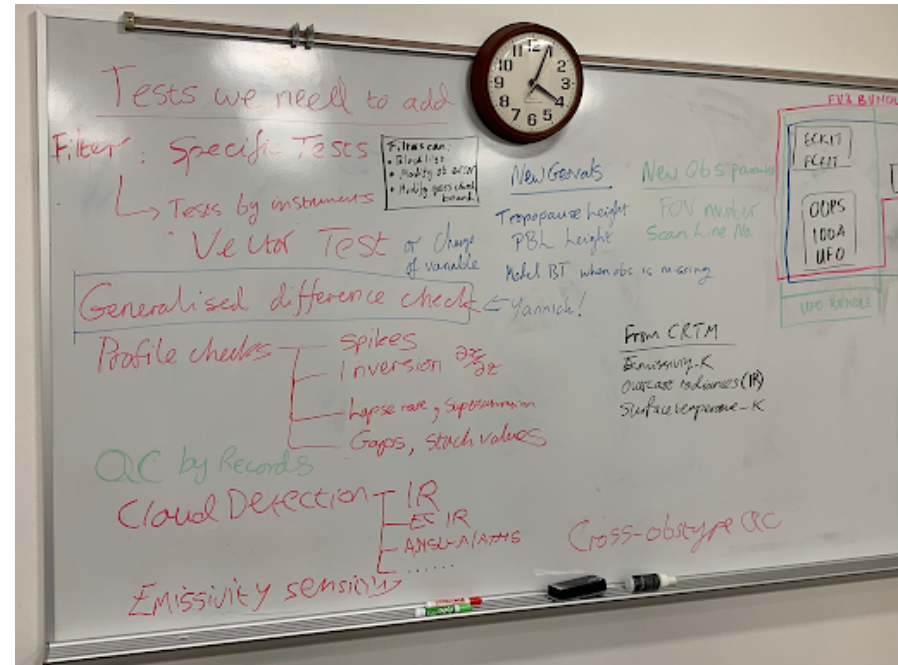 Tests we need to add
Filter: Specific Tests
Filters can:
• Blacklist
• Modify ob error
• Modify gross check
bound
→ Tests by instruments
Vector Test or Change
of variable
Generalised difference check ← Yannick!
Profile checks
spikes
Inversion ∂x/∂z
Lapse rate, Supersaturation
Gaps, stuck values
QC by Records
Cloud Detection
IR
ES IR
AMSU-A/ATMS
......
Emissivity sensitivity
New Geovals
Tropopause height
PBL height
Model BT when obs is missing
New Obs
FOV number
Scan Line No.
From CRTM
Emissivity-K
Overcast radiances (IR)
Surface temperature-K
Cross-obstype QC
FV3 BUNDLE
ECKIT
FCKIT
OOPS
IODA
UFO
UFO BUNDLE
12
1
2
3
4
5
6
7
8
9
10
11